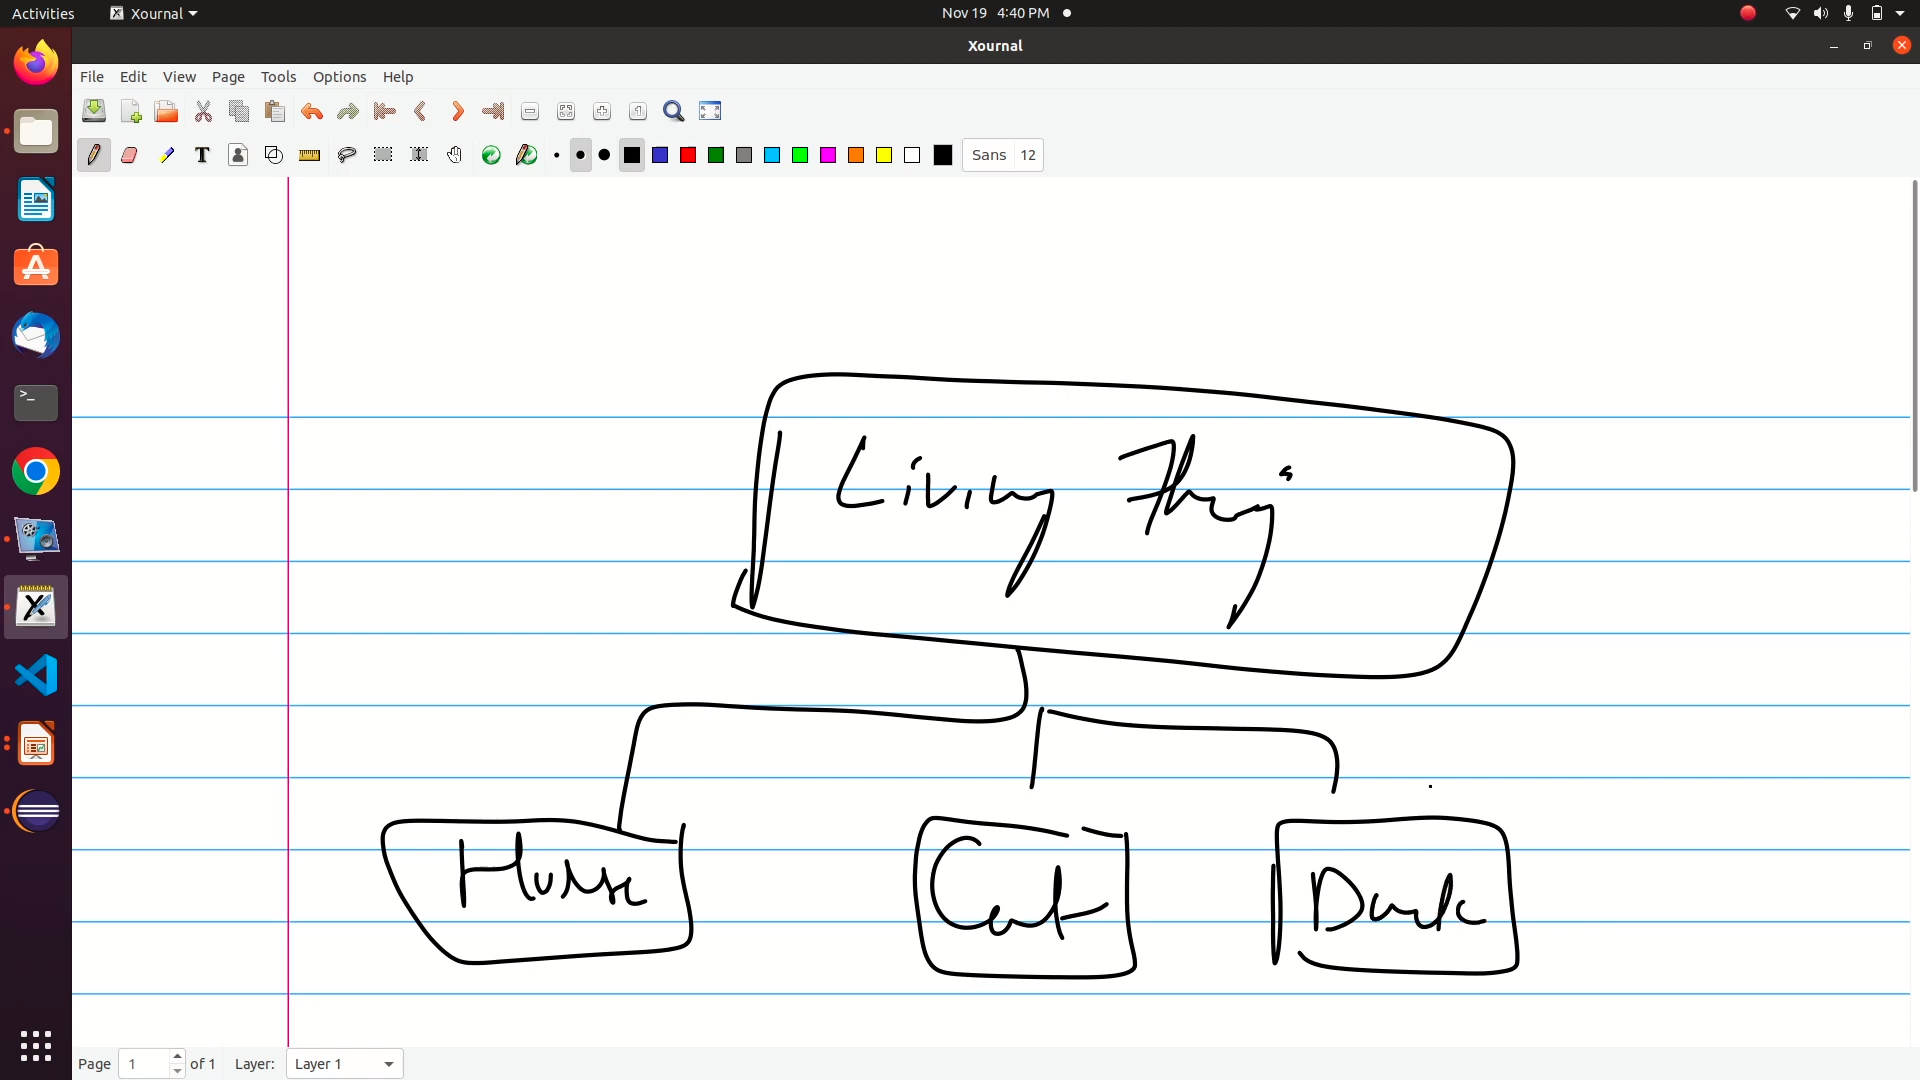 Activities Xournal Nov 19 4:40 PM
Xournal
File Edit View Page Tools Options Help
T Sans 12
Living Things
Cat
Page 1 of 1 Layer: Layer 1